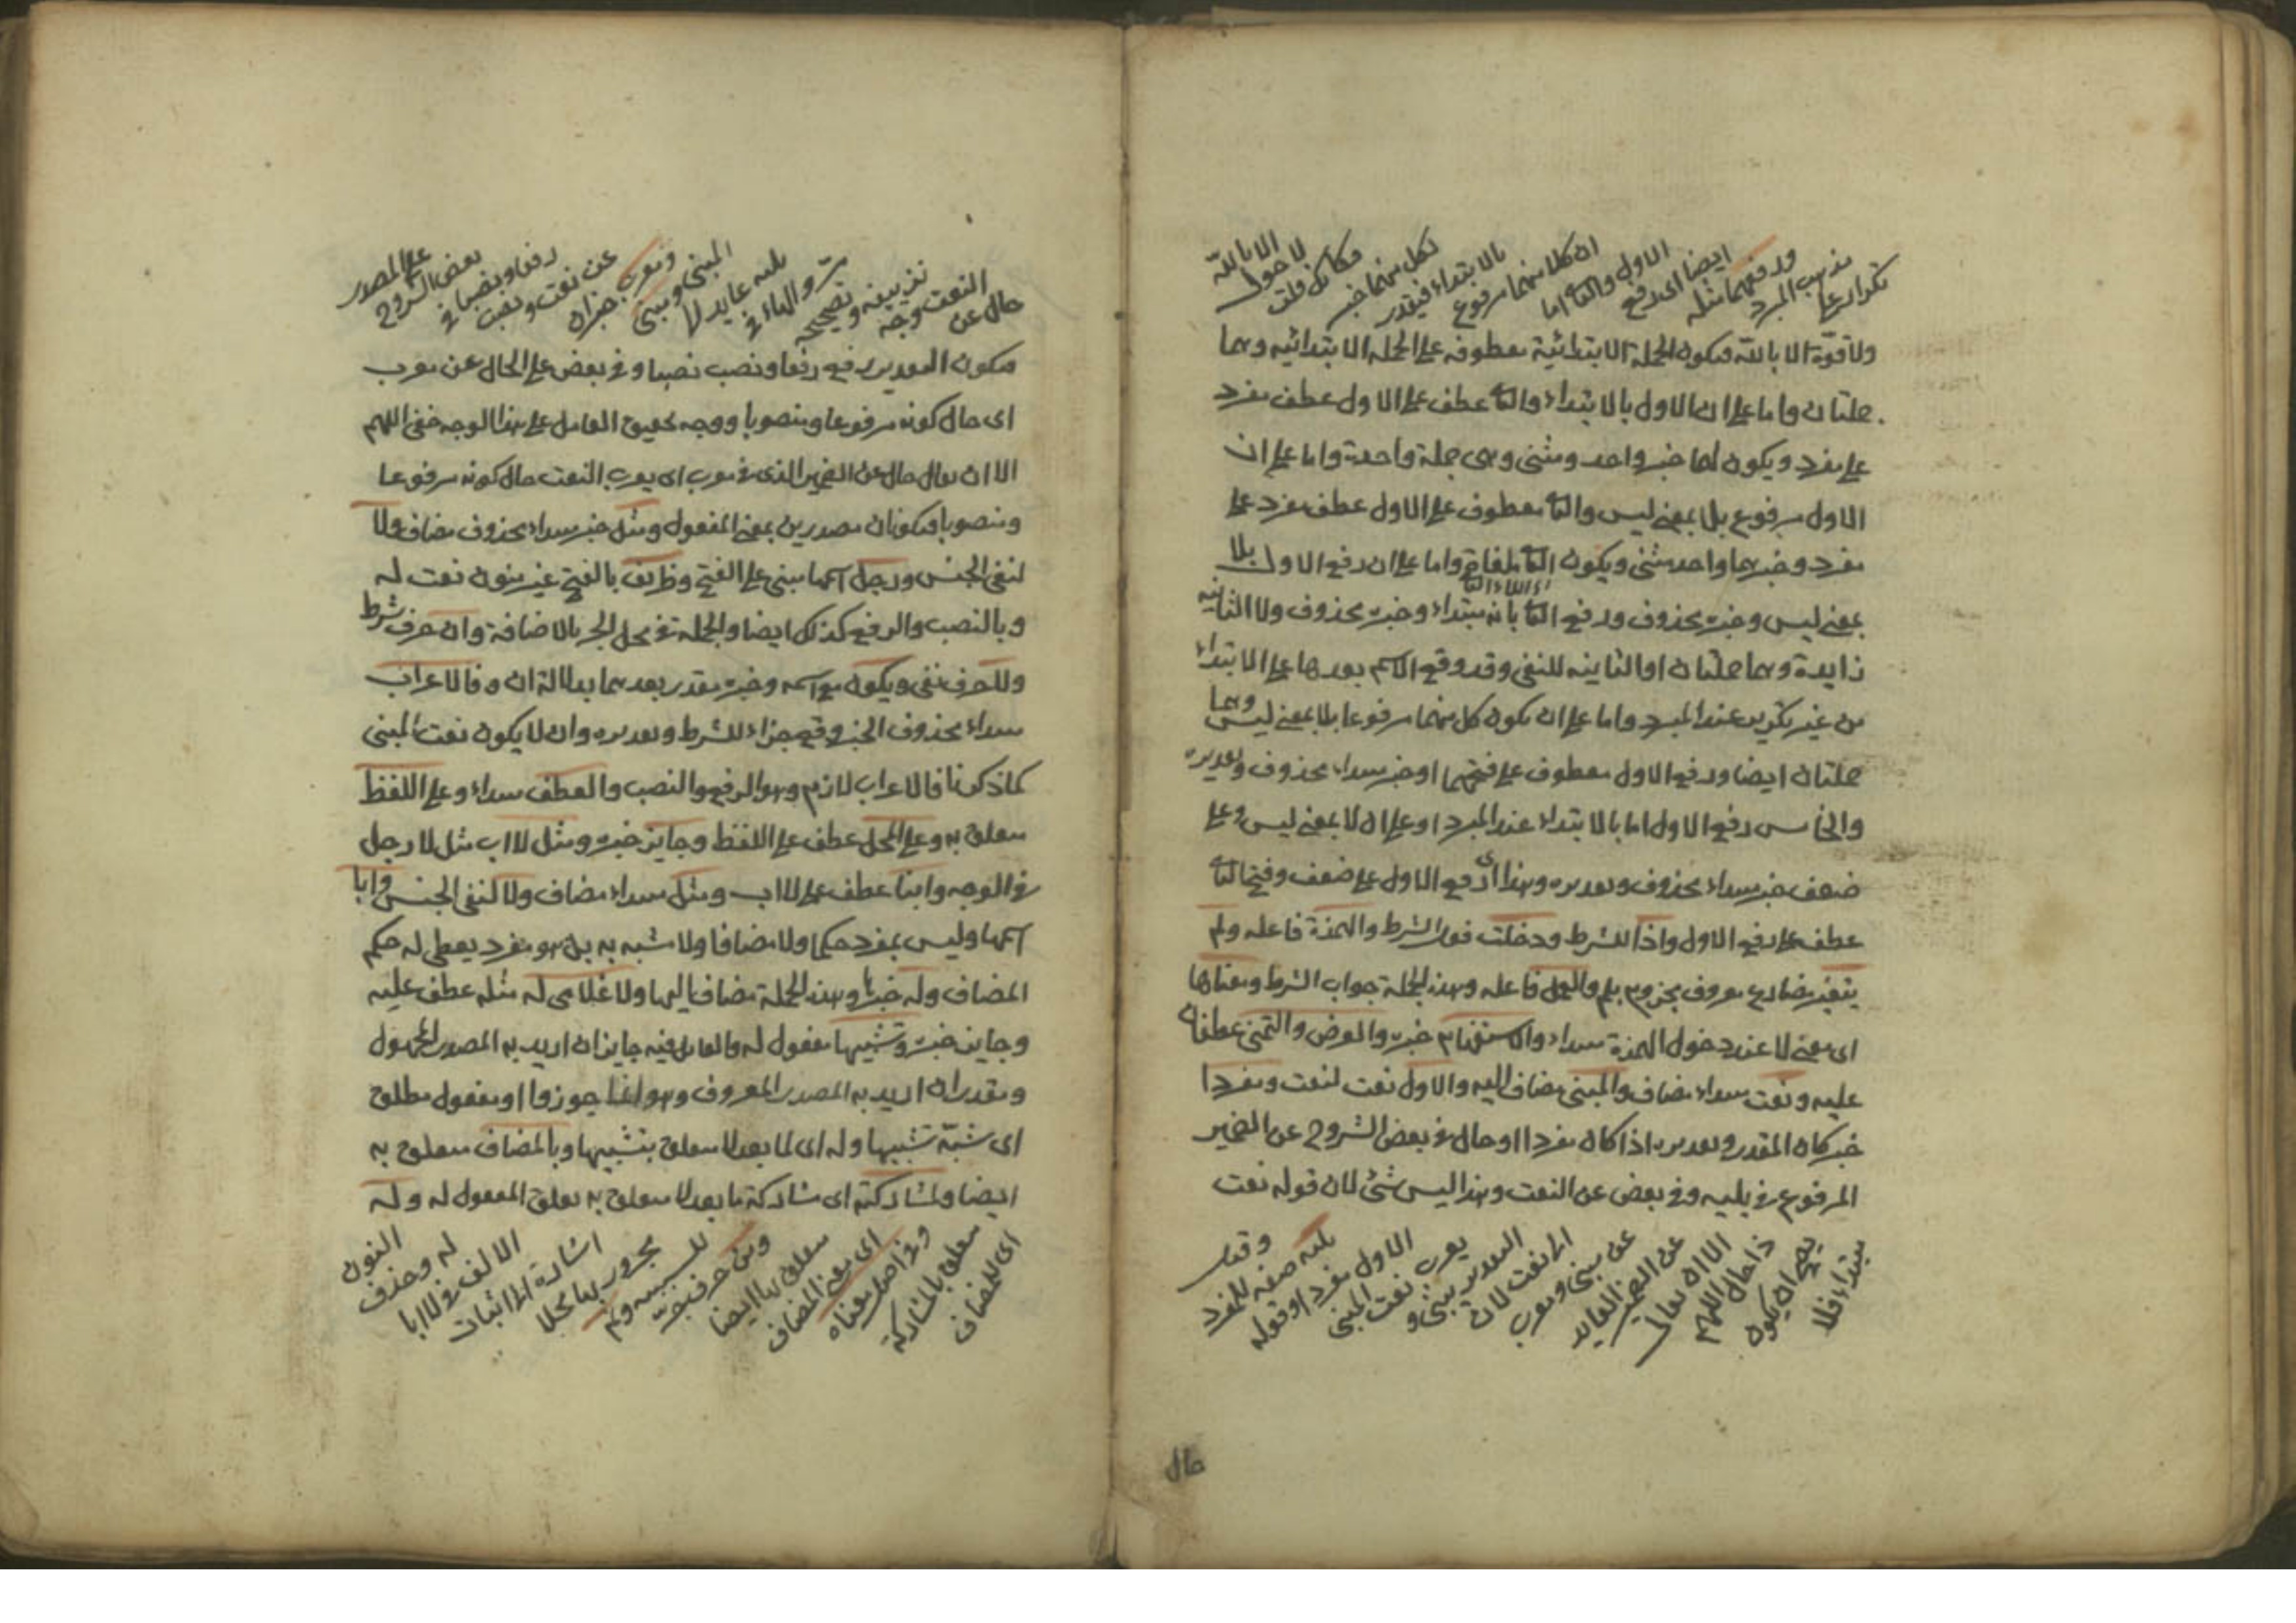 تكرار على
مذهب المبرد
ورفعهما مثله
ايضا اى رفع
الاول والثانى اما
ان كلا منهما مرفوع
بالابتداء فيقدر
لكل منهما خبر
فكأنك قلت
لا حول
الا بالله
ولا قوة الا بالله فيكون الجملة الابتدائية معطوفه على الجمله الابتدائيه وهما
جملتان واما على ان الاول بالابتداء والثانى عطف على الاول عطف مفرد
على مفرد ويكون لهما خبر واحد ومثنى وهى جملة واحدة واما على ان
الاول مرفوع بلا بمعنى ليس والثانى معطوف على الاول عطف مفرد على
مفرد وخبرهما واحد مثنى ويكون الثانى ملغاة واما على ان رفع الاول بلا
بمعنى ليس وخبره محذوف ورفع الثانى بانه مبتداء وخبره محذوف ولا الثانيه
زايدة وهما جملتان او الثانيه للنفى وقد وقع الاسم بعدها على الابتداء
من غير تكرير عند المبرد واما على ان يكون كل منهما مرفوعا بلا بمعنى ليس وهما
جملتان ايضا ورفع الاول معطوف على فتحهما او خبر مبتداء محذوف وتقديره
والخامس رفع الاول اما بالابتداء عند المبرد او على ان لا بمعنى ليس وعلى
ضعف خبر مبتداء محذوف وتقديره وهذا اى رفع الاول على ضعف وفتح الثانى
عطف على رفع الاول واذا للشرط ودخلت فعل الشرط والهمزة فاعله ولم
يتغير مضارع معروف مجزوم بلم والعمل فاعله وهذه الجملة جواب الشرط ومعناها
اى معنى لا عند دخول الهمزة مبتداء والاستفهام خبره والعرض والتمنى عطفان
عليه ونعت مبتداء مضاف والمبنى مضاف اليه والاول نعت لنعت ومفردا
خبر كان المقدر وتقديره اذا كان مفردا او حال فى بعض الشروح عن الضمير
المرفوع فى يليه وفى بعض عن النعت وهذا ليس شئ لان قوله نعت
مبتداء فلا
يصح ان يكون
ذا حال اللهم
الا ان يقال
عن الضمير العايد
عن مبنى ومعرب
الى نعت لان
التقدير يبنى و
يعرب نعت المبنى
الاول مفردا وقوله
يليه صفه لمفرد
وقيل
حال
حال عن
النعت وجه
تزييفه وتصحيحه
مر والهاء فى
يليه عايد لا
المبنى ومبنى
ومعرب خبران
عن نعت ونصب
رفعا ونصبا فى
بعض الشروح
على المصدر
فيكون التقدير يرفع رفعا ونصب نصبا وفى بعض على الحال عن معرب
اى حال كونه مرفوعا ومنصوبا ووجه تحقيق العامل على هذا الوجه خفى اللهم
الا ان يقال حال عن الضمير الذى فى معرب اى يعرب النعت حال كونه مرفوعا
ومنصوبا فيكونان مصدرين بمعنى المفعول ومثل خبر مبتداء محذوف مضاف ولا
لنفى الجنس ورجل اسمها مبنى على الفتح وظريف بالفتح غير منون نعت له
وبالنصب والرفع كذلك ايضا والجملة فى محل الجر بالاضافة وان حرف شرط
ولا حرف نفى ويكون مع اسمه وخبره مقدر بعدهما بدلالة ان وفالاعراب
مبتداء محذوف الخبر وقع جزاء للشرط وتقديره وان لا يكون نعت المبنى
كما ذكرنا فالاعراب لازم وهو الرفع والنصب والعطف مبتداء وعلى اللفظ
متعلق به وعلى المحل عطف على اللفظ وجايز خبره ومثل لا اب مثل لا رجل
فى الوجه وابنا عطف على لا اب ومثل مبتداء مضاف ولا لنفى الجنس وابا
اسمها وليس بمفرد حكما ولا مضافا ولا مشبه به بل هو مفرد يعطى له حكم
المضاف وله خبرها وهذه الجملة مضاف اليها ولا غلامى له مثله عطف عليه
وجايز خبره وتشبيها مفعول له والعامل فيه جايز ان اريد به المصدر المجهول
ومقدر ان اريد به المصدر المعروف وهو انما جوزوا او مفعول مطلق
اى شبه تشبيها وله اى لما بعد لا متعلق بتشبيها وبالمضاف متعلق به
ايضا ولمشاركته اى مشاركة ما بعد لا متعلق به تعلق المفعول له وله
اى للمضاف
متعلق بالمشاركة
وفى اصل معناه
اى معنى المضاف
متعلق بها ايضا
ومن حرف جر
للسببيه ولم
مجرور بها محلا
اشارة الى اثبات
الالف فى لا ابا
له وحذف
النون